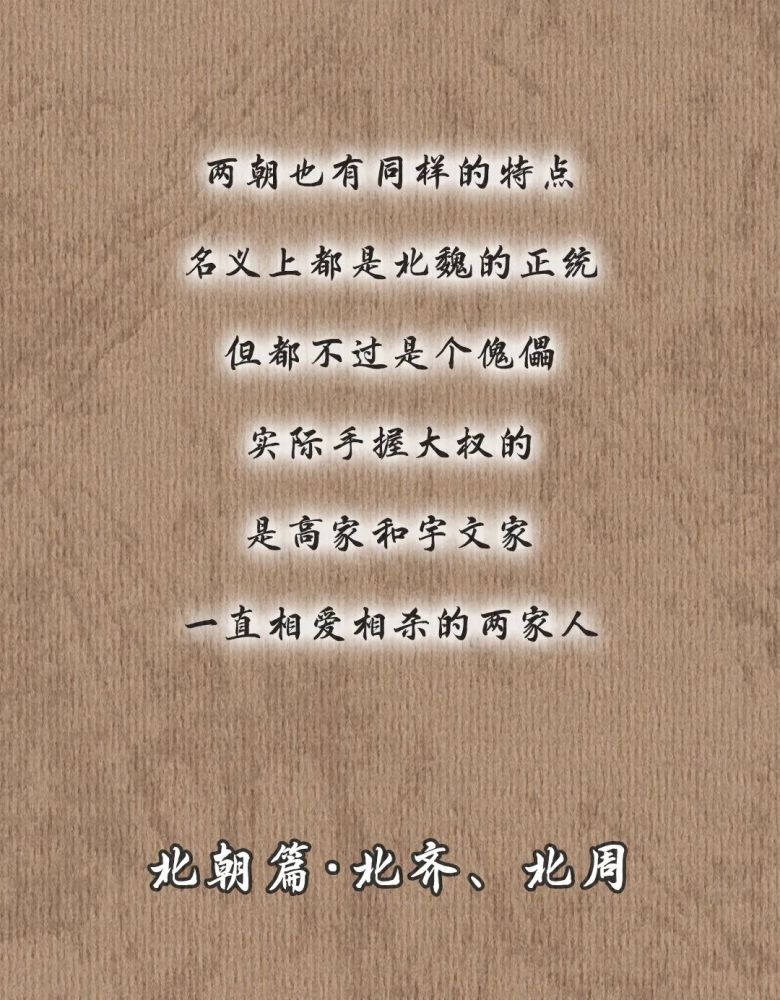 两朝也有同样的特点
名义上都是北魏的正统
但都不过是个傀儡
实际手握大权的
是高家和宇文家
一直相爱相杀的两家人
北朝篇·北齐、北周